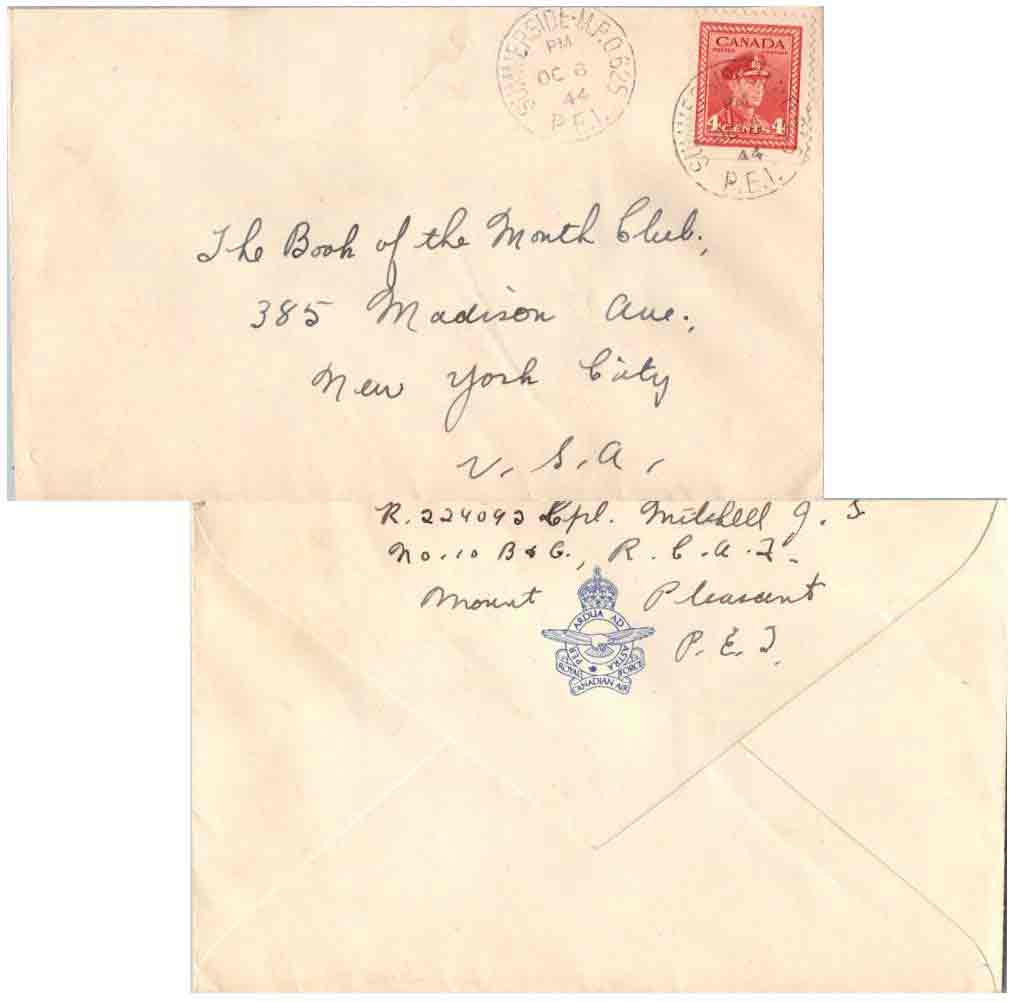 SUMMERSIDE-M.P.O. 625
PM
OC 6
44
P.E.I.
CANADA
POSTES POSTAGE
4 CENTS 4
44
P.E.I.
The Book of the Month Club,
385 Madison Ave.,
New York City
U.S.A.
R.224092 Cpl. Mitchell J. I
No. 10 B & G., R.C.A.F.
Mount Pleasant
P.E.I.
PER ARDUA AD ASTRA
ROYAL CANADIAN AIR FORCE